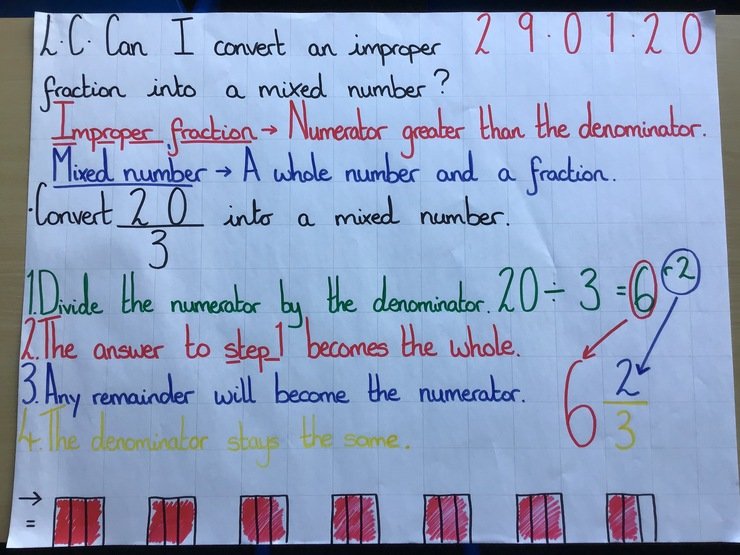 L.C. Can I convert an improper 29.01.20
fraction into a mixed number?
Improper fraction → Numerator greater than the denominator.
Mixed number → A whole number and a fraction.
·Convert 20/3 into a mixed number.
1.Divide the numerator by the denominator. 20 ÷ 3 = 6 r2
2.The answer to step 1 becomes the whole.
3.Any remainder will become the numerator.
6 2/3
4.The denominator stays the same.
→
=